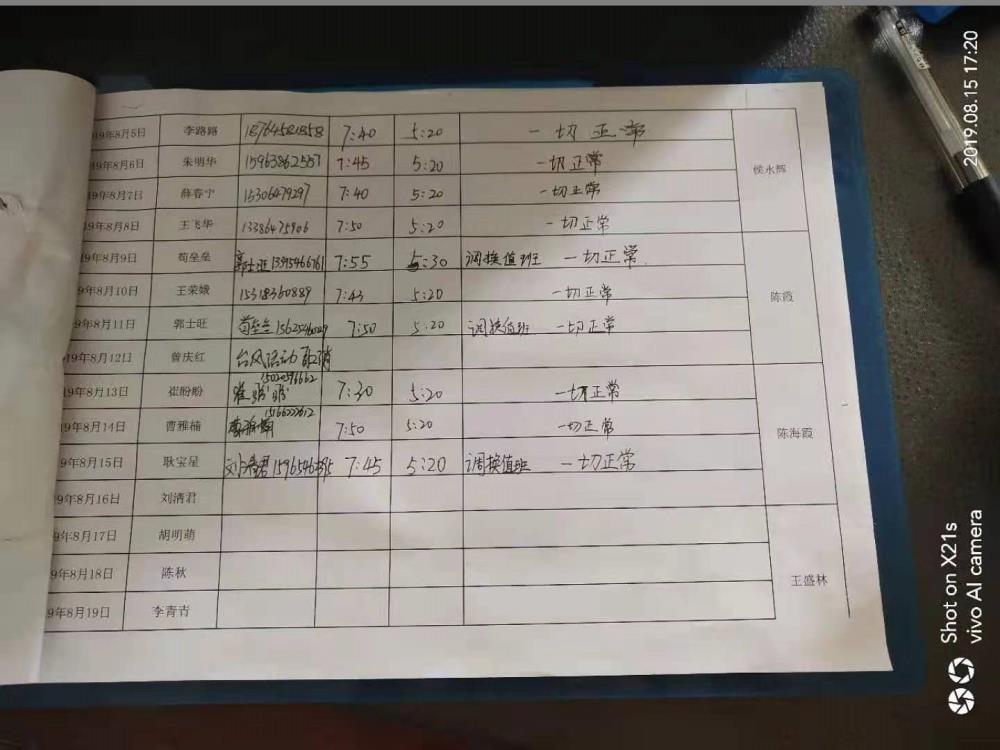 19年8月5日 李路路 18764581858 7:40 5:20 一切正常
9年8月6日 朱明华 15963862557 7:45 5:20 一切正常
侯永辉
9年8月7日 薛春宁 15306479297 7:40 5:20 一切正常
9年8月8日 王飞华 13386475906 7:50 5:20 一切正常
年8月9日 荀垒垒 郭士旺 7:55 5:30 调换值班 一切正常
9年8月10日 王荣娥 15318360889 7:43 5:20 一切正常
陈霞
年8月11日 郭士旺 荀垒垒 7:50 5:20 调换值班 一切正常
19年8月12日 曾庆红 台风活动
9年8月13日 崔盼盼 崔盼盼 7:30 5:20 一切正常
9年8月14日 曹雅楠 7:50 5:20 一切正常
陈海霞
9年8月15日 耿宝星 刘清君 7:45 5:20 调换值班 一切正常
9年8月16日 刘清君
9年8月17日 胡明萌
9年8月18日 陈秋
王盛林
9年8月19日 李青青
2019.08.15 17:20
Shot on X21s
vivo AI camera